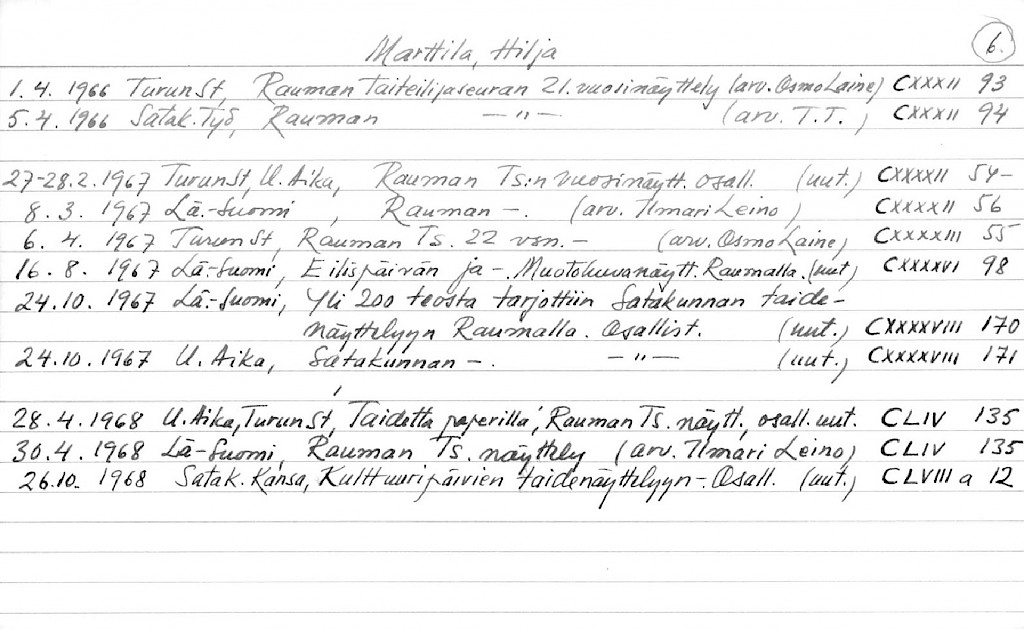 6.
Marttila, Hilja
1.4. 1966 Turun St, Rauman Taiteilijaseuran 21. vuosinäyttely (arv. Osmo Laine) CXXXII 93
5.4. 1966 Satak. Työ, Rauman —"— (arv. T.T.) CXXXII 94
27-28.2. 1967 Turun St, U. Aika, Rauman Ts:n vuosinäytt. osall. (uut.) CXXXXII 54-
8.3. 1967 Lä.-Suomi, Rauman -. (arv. Ilmari Leino) CXXXXII 56
6.4. 1967 Turun St, Rauman Ts. 22 vsn. - (arv. Osmo Laine) CXXXXIII 55
16.8. 1967 Lä.-Suomi, Eilispäivän ja -. Muotokuvanäytt. Raumalla. (uut) CXXXXVI 98
24.10. 1967 Lä.-Suomi, Yli 200 teosta tarjottiin Satakunnan taide-
näyttelyyn Raumalla. Osallist. (uut.) CXXXXVIII 170
24.10. 1967 U. Aika, Satakunnan -. —"— (uut.) CXXXXVIII 171
28.4. 1968 U. Aika, Turun St, 'Taidetta paperilla', Rauman Ts. näytt., osall. uut. CLIV 135
30.4. 1968 Lä-Suomi, Rauman Ts. näyttely (arv. Ilmari Leino) CLIV 135
26.10. 1968 Satak. Kansa, Kulttuuripäivien taidenäyttelyyn -. Osall. (uut.) CLVIII a 12